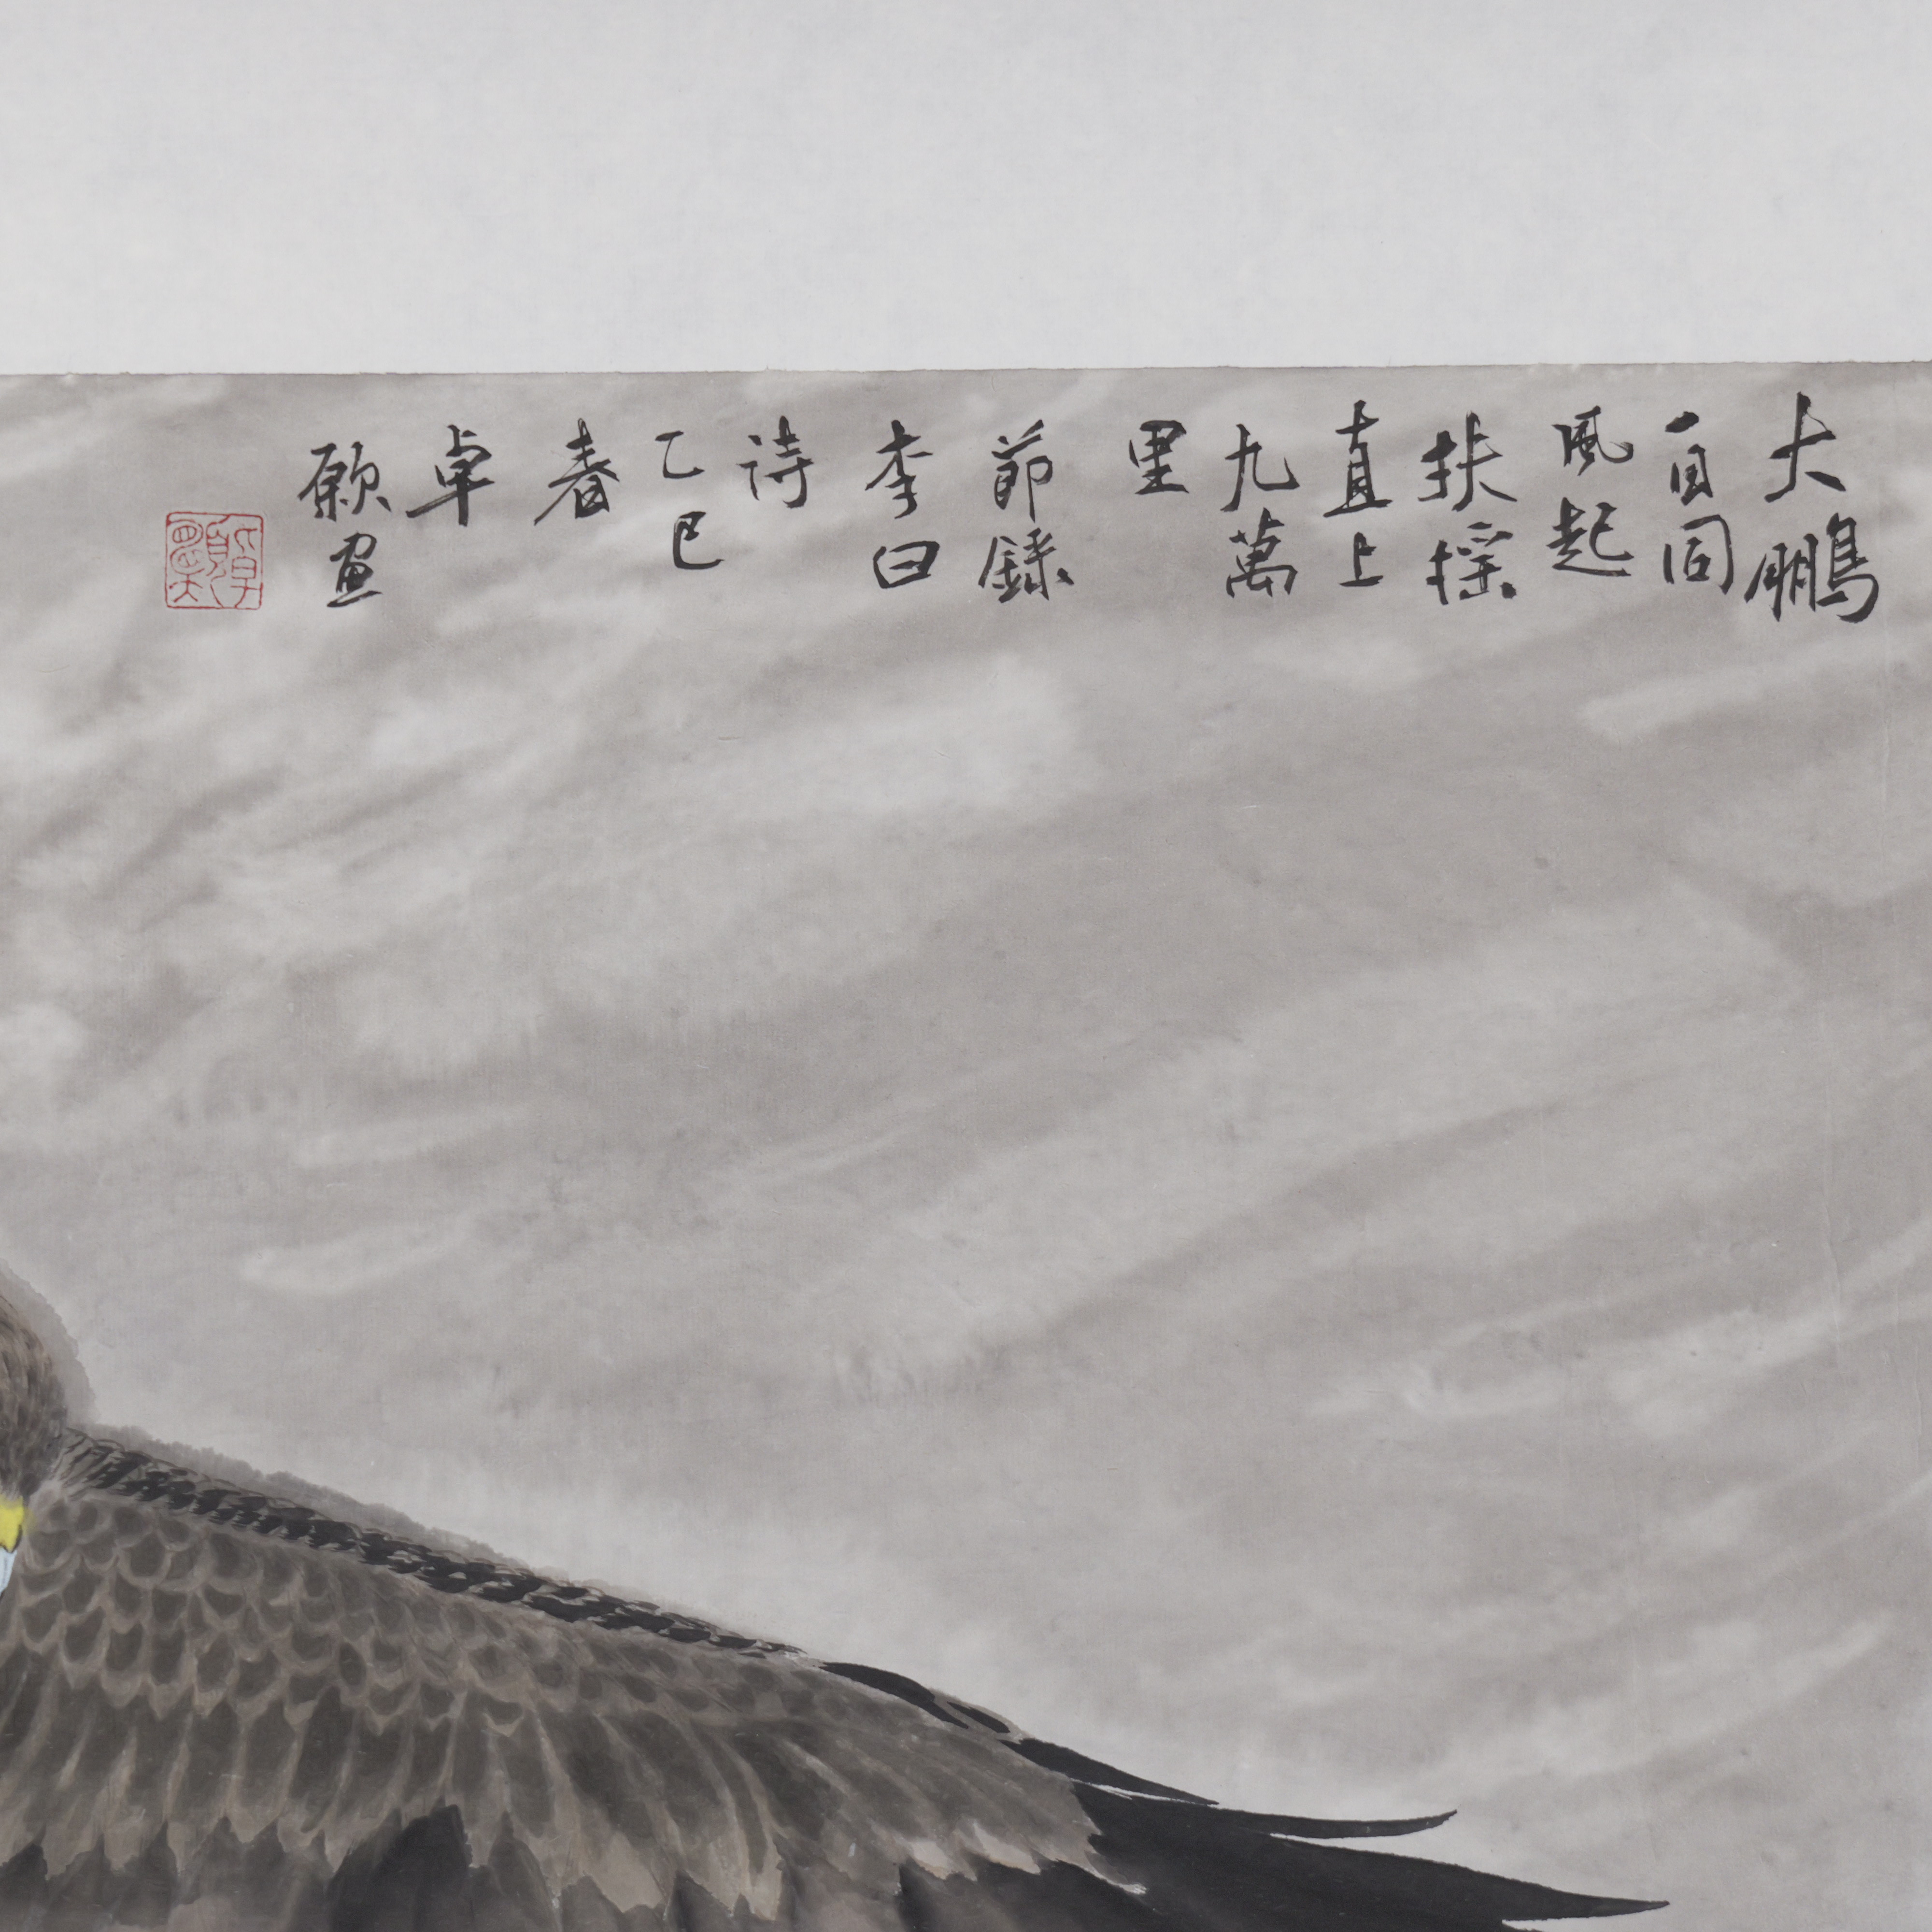 大鵬
一日同
風起
扶搖
直上
九萬
里
節錄
李白
詩
乙巳
春
卓
願畫